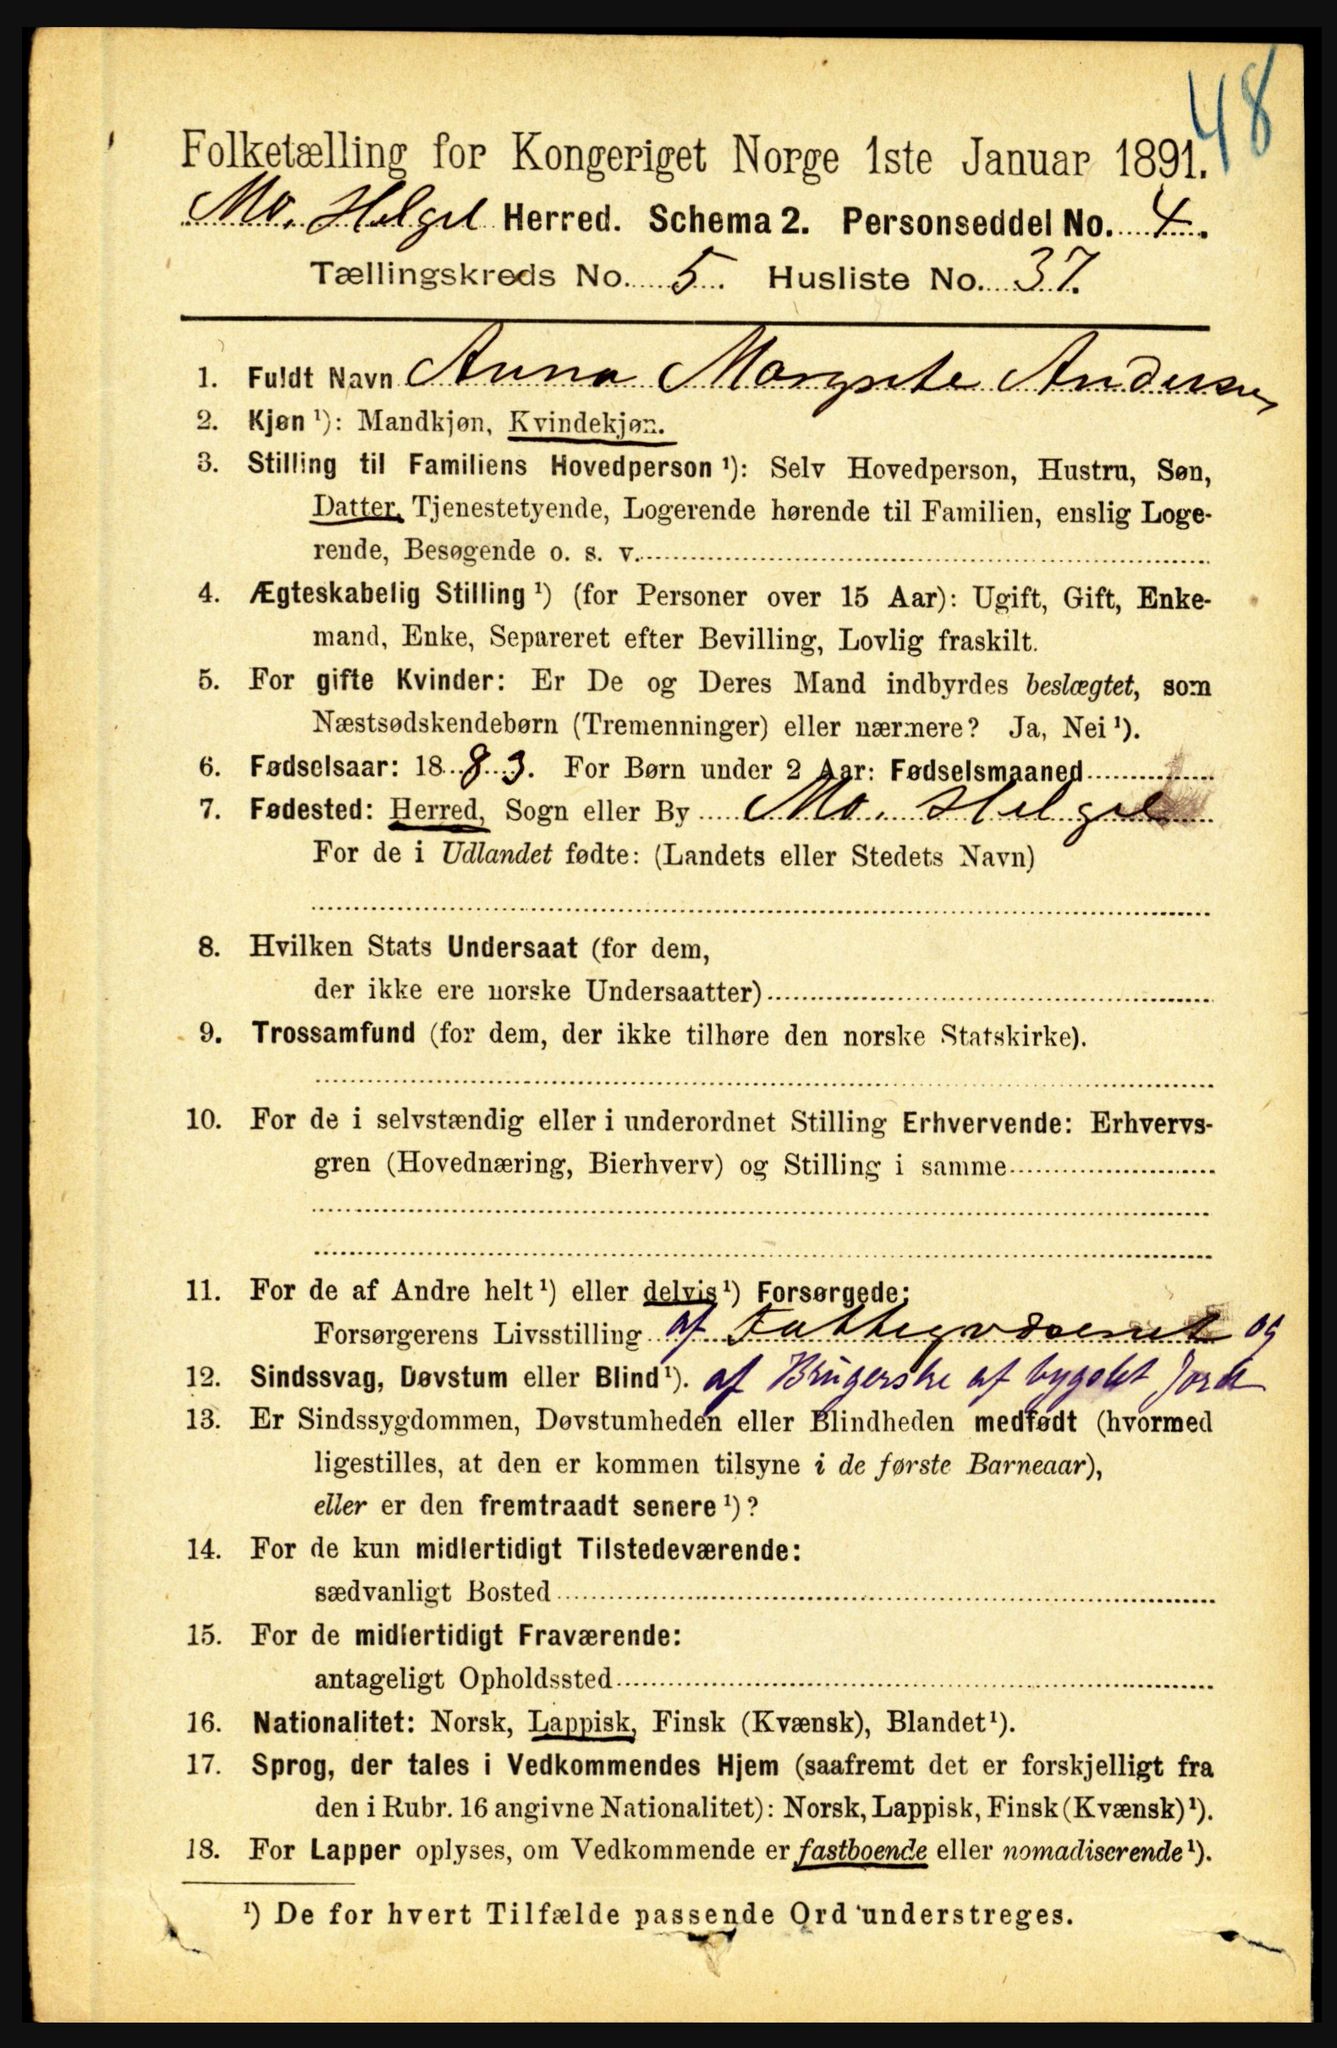 48
Folketælling for Kongeriget Norge 1ste Januar 1891.
Mo. Helgel Herred. Schema 2. Personseddel No. 4.
Tællingskreds No. 5. Husliste No. 37.
1. Fuldt Navn Anna Margrete Andersen
2. Kjøn ¹): Mandkjøn, Kvindekjøn.
3. Stilling til Familiens Hovedperson ¹): Selv Hovedperson, Hustru, Søn,
Datter, Tjenestetyende, Logerende hørende til Familien, enslig Loge-
rende, Besøgende o. s. v.
4. Ægteskabelig Stilling ¹) (for Personer over 15 Aar): Ugift, Gift, Enke-
mand, Enke, Separeret efter Bevilling, Lovlig fraskilt.
5. For gifte Kvinder: Er De og Deres Mand indbyrdes beslægtet, som
Næstsødskendebørn (Tremenninger) eller nærmere? Ja, Nei ¹).
6. Fødselsaar: 1883. For Børn under 2 Aar: Fødselsmaaned
7. Fødested: Herred, Sogn eller By Mo. Helgel
For de i Udlandet fødte: (Landets eller Stedets Navn)
8. Hvilken Stats Undersaat (for dem,
der ikke ere norske Undersaatter)
9. Trossamfund (for dem, der ikke tilhøre den norske Statskirke).
10. For de i selvstændig eller i underordnet Stilling Erhvervende: Erhvervs-
gren (Hovednæring, Bierhverv) og Stilling i samme
11. For de af Andre helt ¹) eller delvis ¹) Forsørgede:
Forsørgerens Livsstilling af Fattigvæsenet og
12. Sindssvag, Døvstum eller Blind ¹). af Brugerske af bygslet Jord
13. Er Sindssygdommen, Døvstumheden eller Blindheden medfødt (hvormed
ligestilles, at den er kommen tilsyne i de første Barneaar),
eller er den fremtraadt senere ¹)?
14. For de kun midlertidigt Tilstedeværende:
sædvanligt Bosted
15. For de midlertidigt Fraværende:
antageligt Opholdssted
16. Nationalitet: Norsk, Lappisk, Finsk (Kvænsk), Blandet ¹).
17. Sprog, der tales i Vedkommendes Hjem (saafremt det er forskjelligt fra
den i Rubr. 16 angivne Nationalitet): Norsk, Lappisk, Finsk (Kvænsk) ¹).
18. For Lapper oplyses, om Vedkommende er fastboende eller nomadiserende ¹).
¹) De for hvert Tilfælde passende Ord understreges.